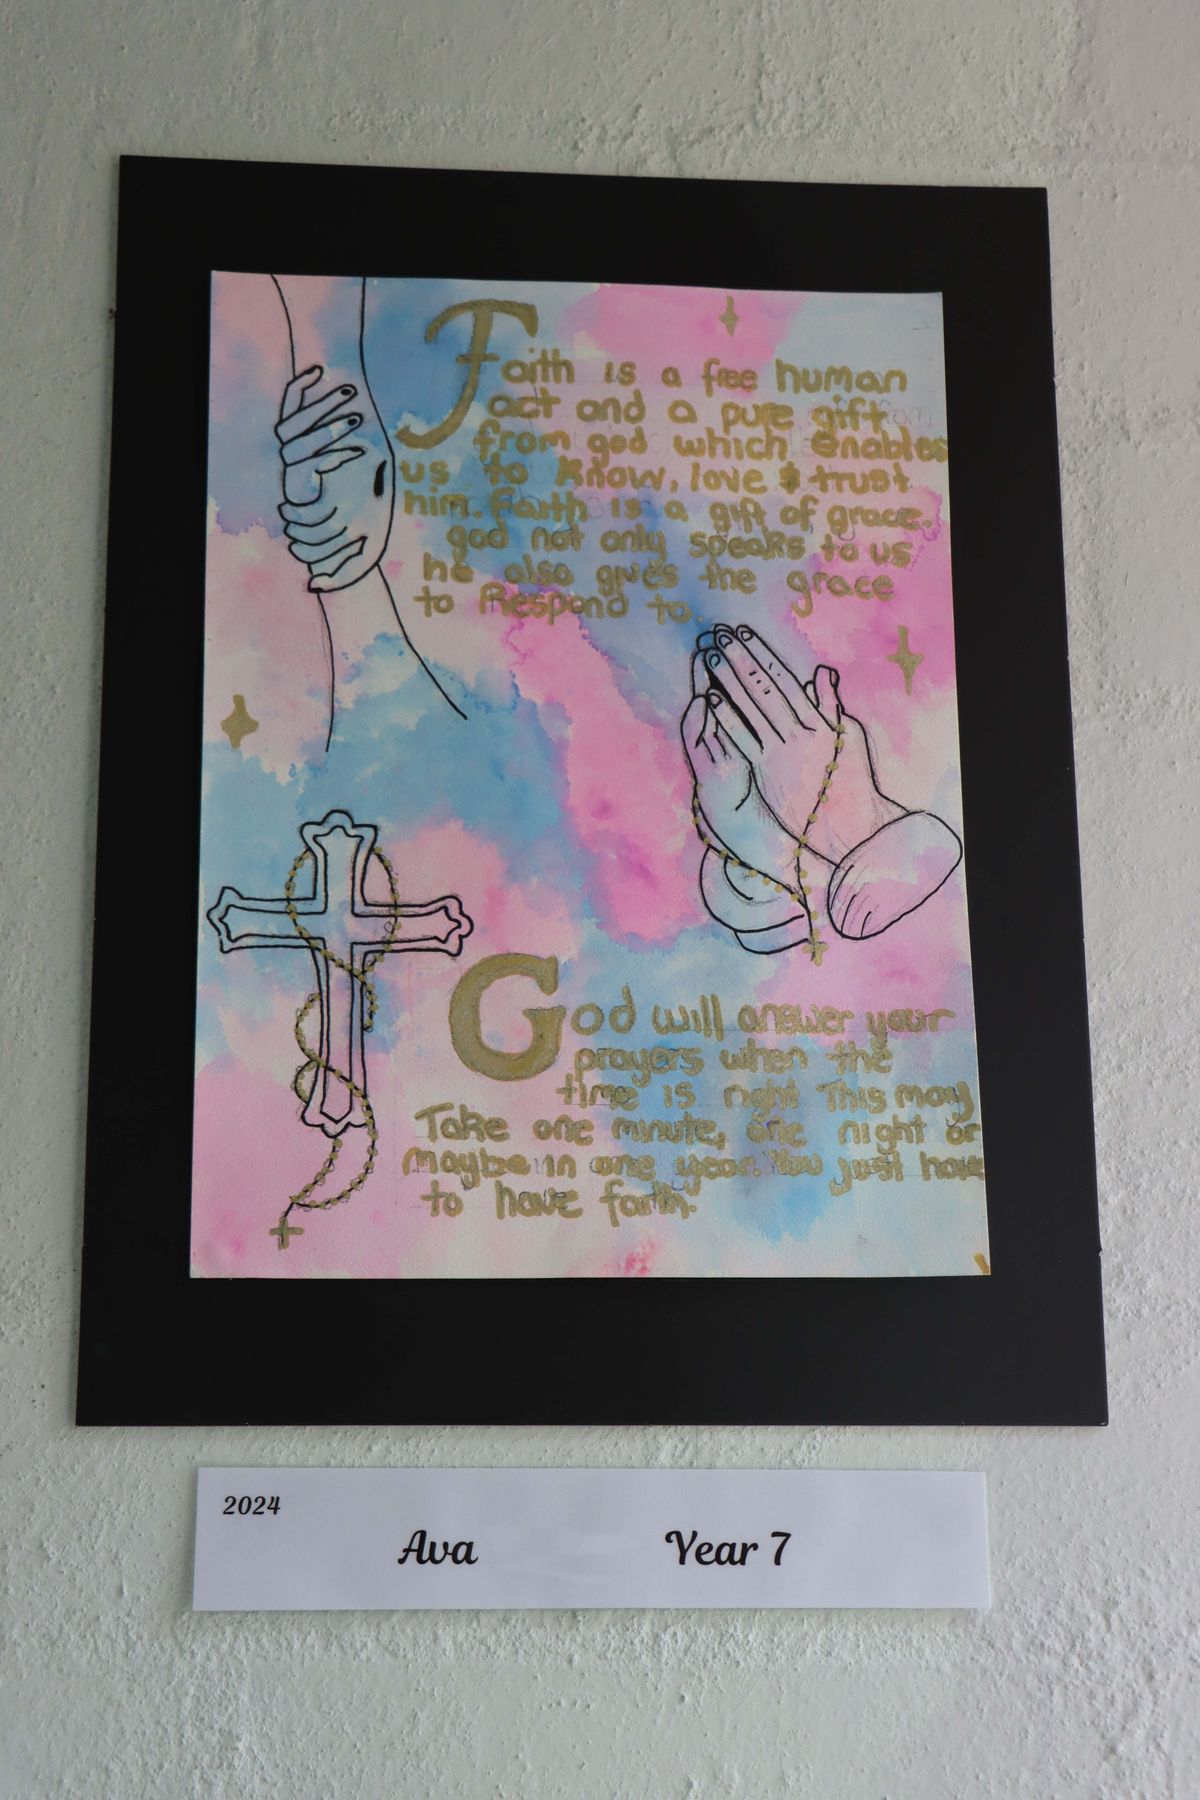 Faith is a free human
act and a pure gift
from god which enables
us to know, love & trust
him. Faith is a gift of grace.
god not only speaks to us
he also gives the grace
to Respond to.
God will answer your
prayers when the
time is right This may
Take one minute, one night or
maybe in one year. You just have
to have faith.
2024
Ava Year 7